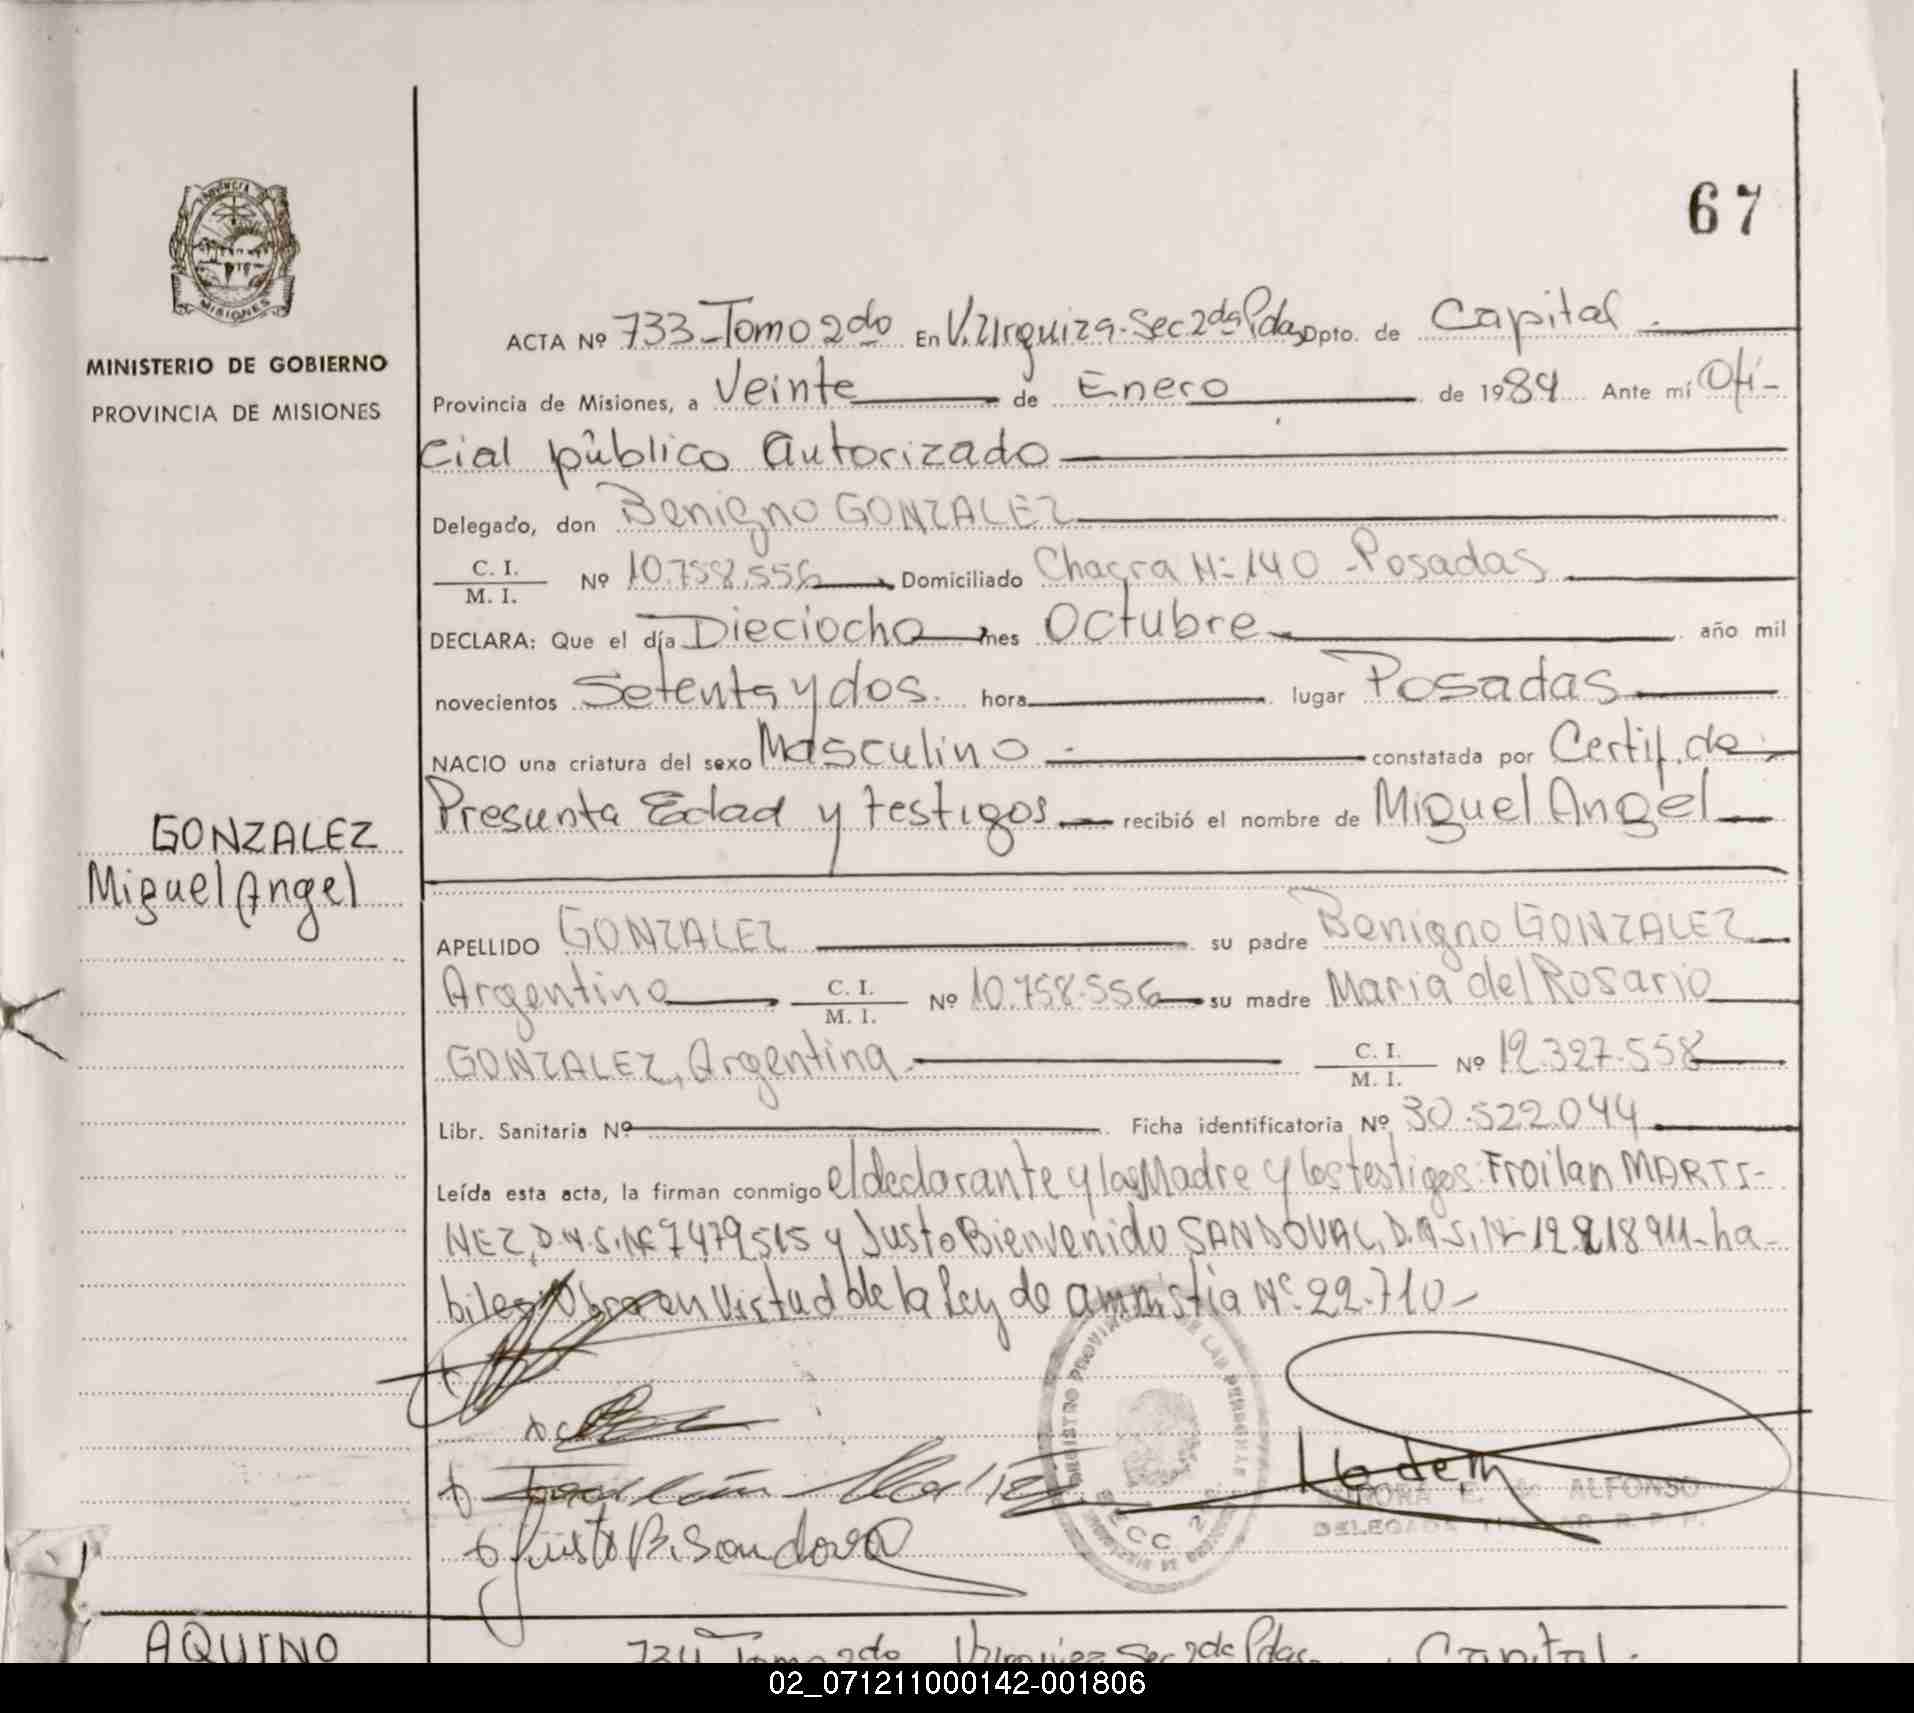 67
MINISTERIO DE GOBIERNO
PROVINCIA DE MISIONES
ACTA Nº 733-Tomo 2do En V. Urquiza-Sec 2da Pdas Dpto. de Capital
Provincia de Misiones, a Veinte de Enero de 1984 Ante mí Ofi-
cial público Autorizado
Delegado, don Benigno GONZALEZ
C. I.
M. I. Nº 10.758.556 Domiciliado Chacra Nº 140 - Posadas
DECLARA: Que el día Dieciocho mes Octubre año mil
novecientos Setenta y dos. hora lugar Posadas
NACIO una criatura del sexo Masculino constatada por Certif. de
Presunta Edad y testigos recibió el nombre de Miguel Angel
GONZALEZ
Miguel Angel
APELLIDO GONZALEZ su padre Benigno GONZALEZ
Argentino C. I. M. I. Nº 10.758.556 su madre Maria del Rosario
GONZALEZ, Argentina C. I. M. I. Nº 12.327.558
Libr. Sanitaria Nº Ficha identificatoria Nº 30.522.044
Leída esta acta, la firman conmigo el declarante y la Madre y los testigos: Froilan MARTI-
NEZ, D.N.I. Nº 7479515 y Justo Bienvenido SANDOVAL, D.N.I. Nº 12.218911-ha-
biles. Obra en Virtud de la Ley de amnistia Nº 22.710-
Justo B. Sandoval
SECC 2
E. ALFONSO
DELEGADA TITULAR R. P. P.
AQUINO
734 Tomo 2do V. Urquiza Sec 2da Pdas. Capital.
02_071211000142-001806